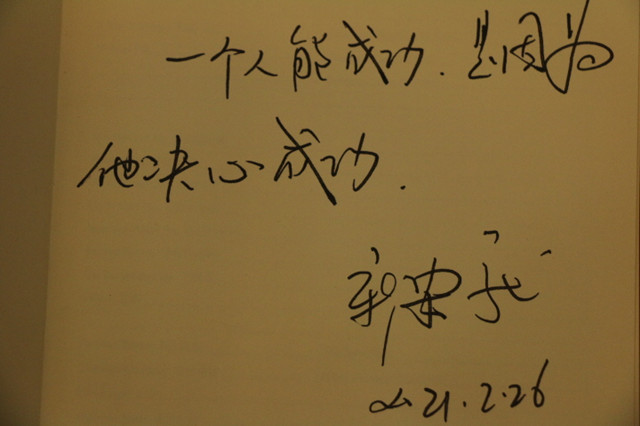 一个人能成功.是因为
他决心成功.
21.2.26